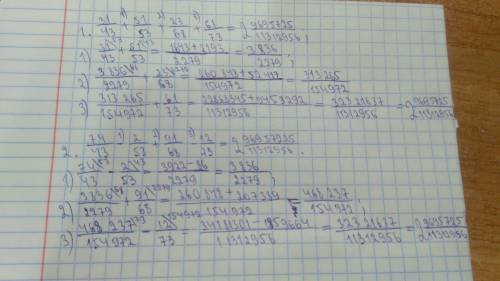 1. 31/43 + 51/53 + 23/68 + 61/73 = 2 9695725/11312956
1) 31/43 + 51/53 = 1643+2193/2279 = 3836/2279;
2) 3836/2279 + 23/68 = 260 848+52 417/154972 = 313265/154972
3) 313 265/154 972 + 61/73 = 22868345+9453292/11312956 = 323 21637/11312956 = 2 9695725/11312956
2. 74/43 - 2/53 + 91/68 - 12/73 = 2 96957225/11312956.
1) 74/43 - 2/53 = 3922-86/2279 = 3836/2279;
2) 3836/2279 + 91/68 = 260 848 + 207389/154972 = 468 237/154972;
3) 468 237/154 972 - 12/73 = 34181301 - 1859664/11312956 = 323 21637/11312956 = 2 9695725/11312956